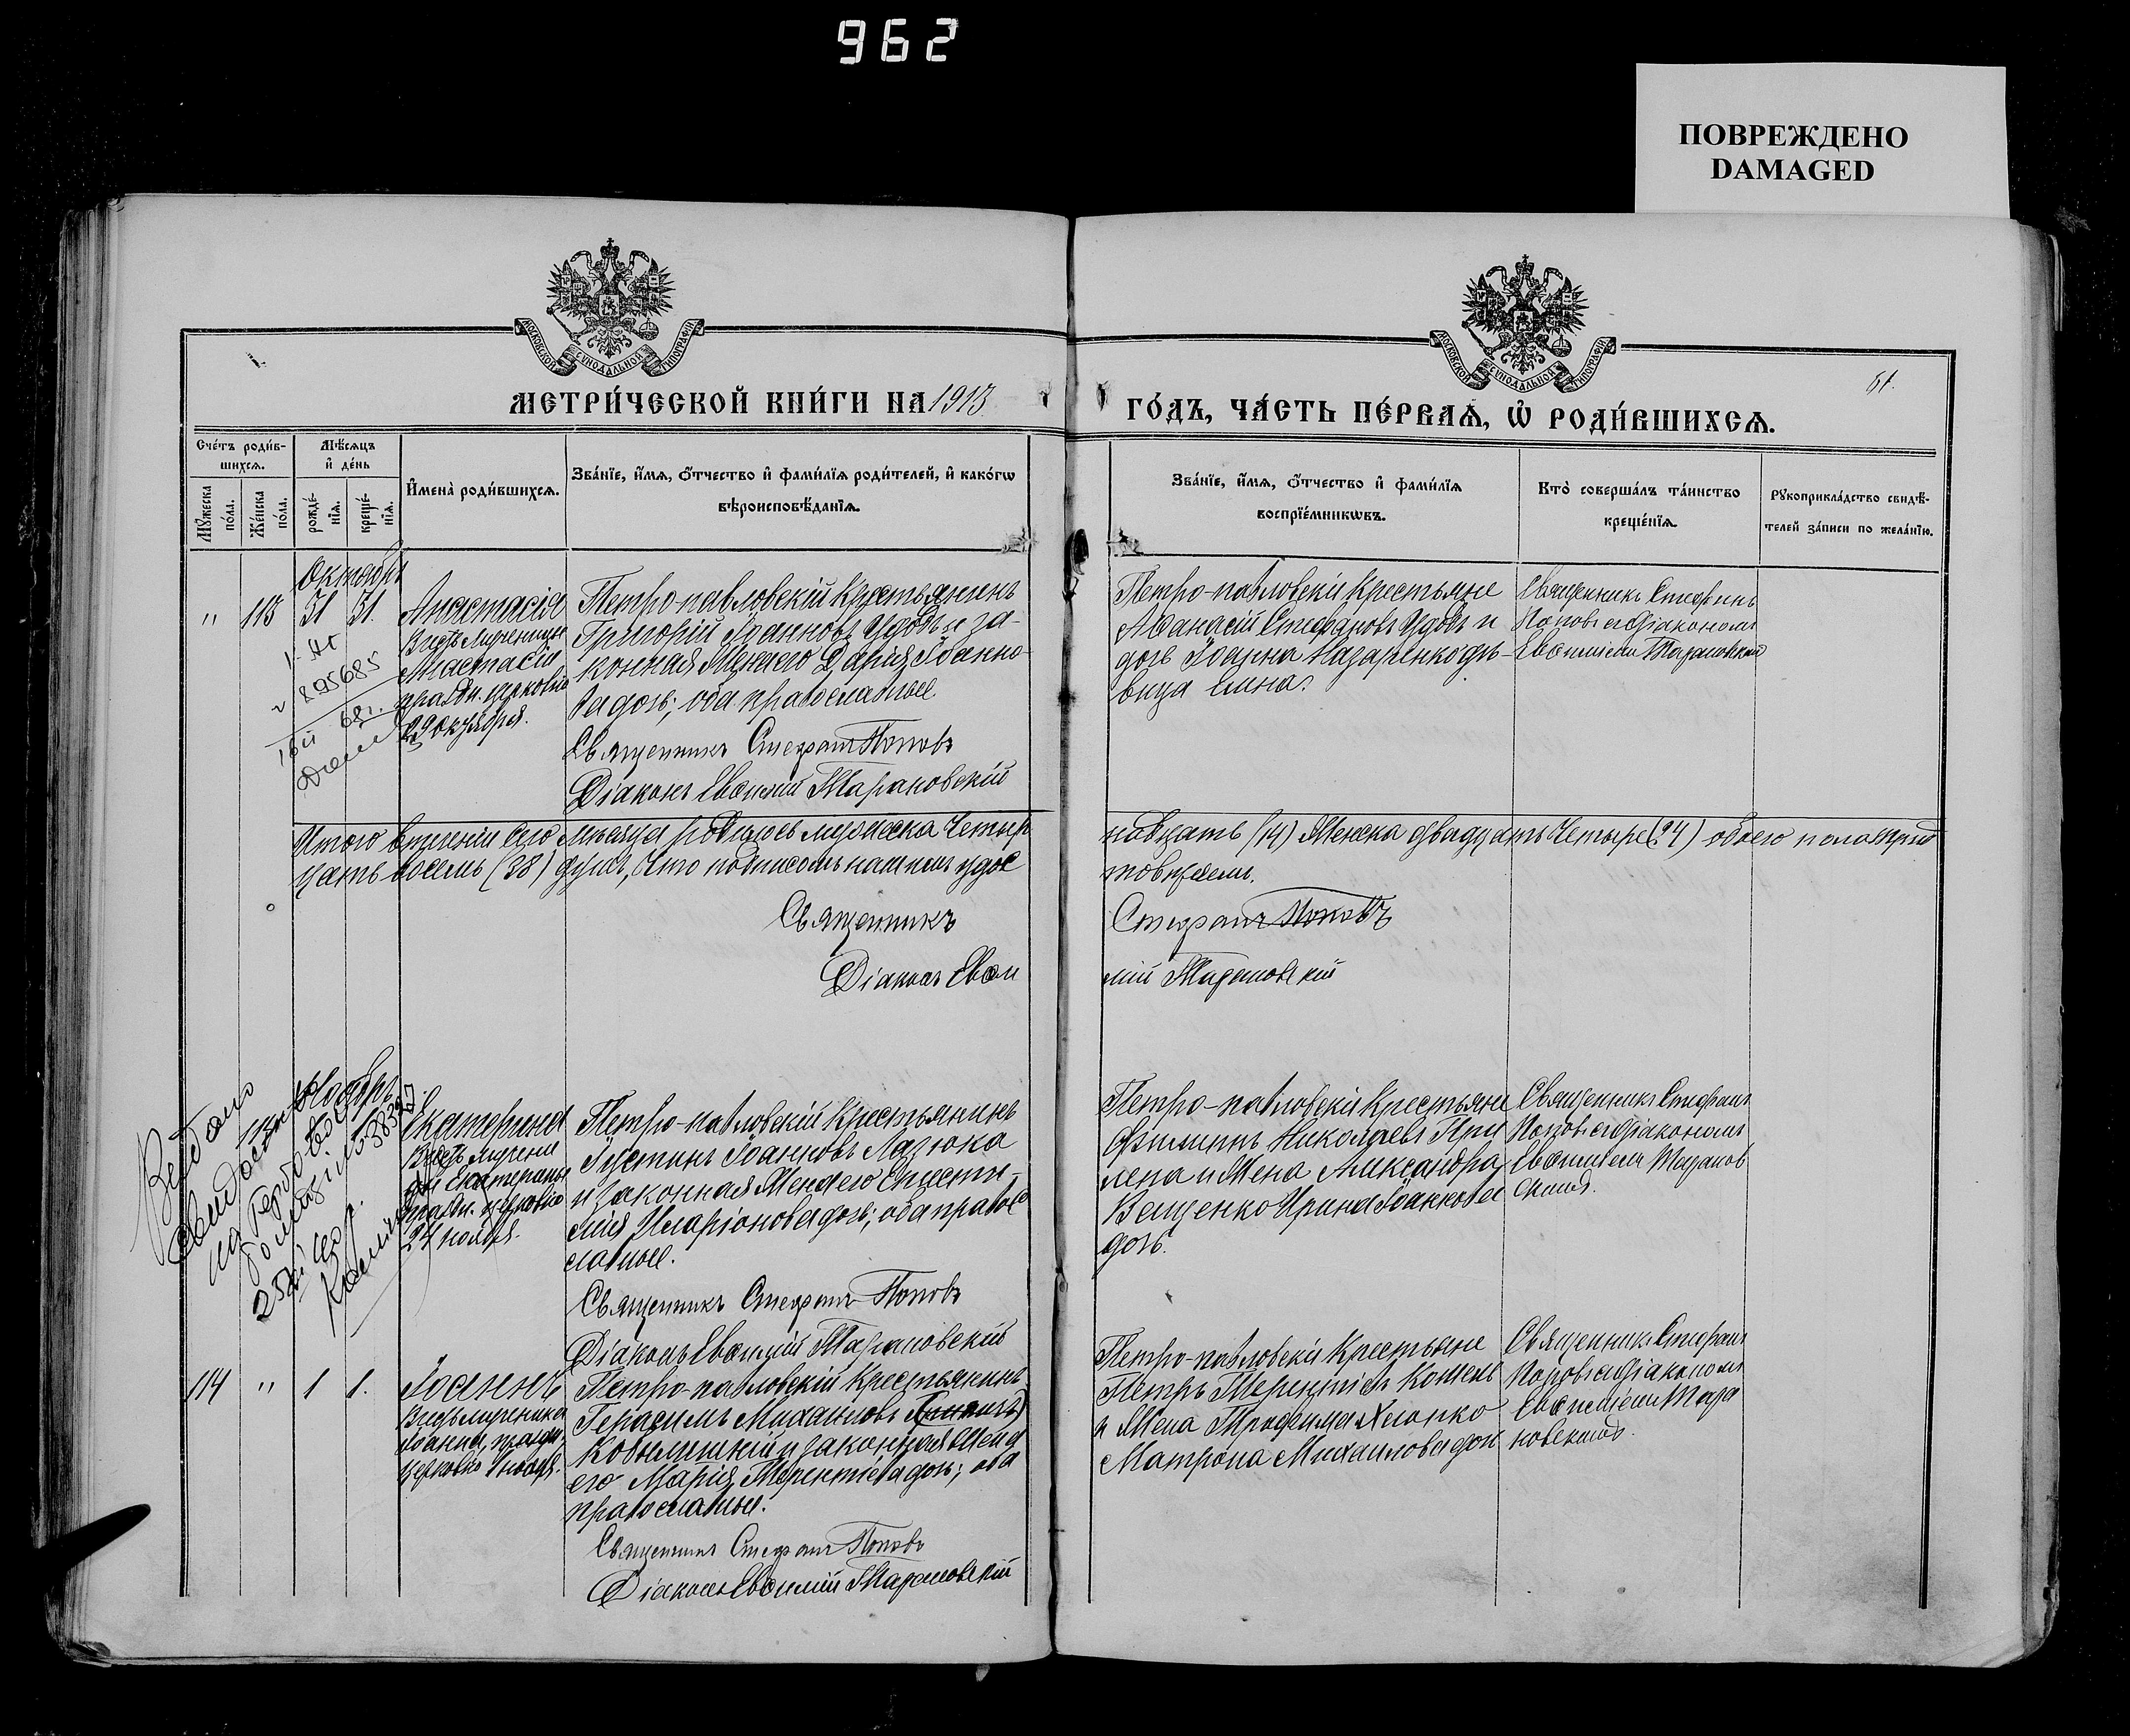 962
ПОВРЕЖДЕНО
DAMAGED
МОСКОВСКОЙ СѴНОДАЛЬНОЙ ТИПОГРАФІИ
МОСКОВСКОЙ СѴНОДАЛЬНОЙ ТИПОГРАФІИ
61.
МЕТРИ́ЧЕСКОЙ КНИ́ГИ НА 1913
ГО́ДЪ, ЧА́СТЬ ПЕ́РВАѦ, Ѡ РОДИ́ВШИХСѦ.
Сче́тъ роди́в-
шихсѧ.
Мѣ́сѧцъ
и҆ де́нь
Мꙋ́жеска
по́ла.
Же́нска
по́ла.
рожде́-
нїѧ.
креще́-
нїѧ.
И҆мена̀ роди́вшихсѧ.
Зва́нїе, и҆́мѧ, ѻ҆́тчество и҆ фами́лїѧ роди́телей, и҆ како́гѡ
вѣроисповѣ́данїѧ.
Зва́нїе, и҆́мѧ, ѻ҆́тчество и҆ фами́лїѧ
воспрїе́мникѡвъ.
Кто̀ соверша́лъ та́инство
креще́нїѧ.
Рꙋкоприкла́дство свидѣ́-
телей за́писи по жела́нїю.
Октябрь
" 113 31 31. Анастасія
Анастасіи
праздн. церковію
29 октября.
895685
68г.
Петро-павловскій крестьянинъ
Григорій Іоанновъ Удовъ и за-
конная жена его Дарія Іоанно-
ва дочь; оба православные
Священникъ Стефанъ Поповъ
Діаконъ Евѳимій Тарановскій
Петро-павловскіи крестьяне
Аѳанасій Стефановъ Удовъ и
дочь Іоанна Назаренко дѣ-
вица
Священникъ Стефанъ
Поповъ съ діакономъ
Евѳиміемъ Тарановскимъ
Итого въ теченіи сего мѣсяца родилось мужеска Четыр
надцать (14) Женска двадцать Четыре (24) обоего пола трид
цать восемь (38) душъ, Что подписомъ нашимъ удос
товѣряемъ.
Священникъ
Стефанъ Поповъ
Діаконъ Евѳи
мій Тарановскій
Выдано
на гербовой
Ноябрь
Екатерина
Екатерины
праздн. церковію
24 ноября.
Петро-павловскій крестьянинъ
Іустинъ Іоанновъ Лазюка
и законная жена его Еписти-
мія Иларіонова дочь; оба правос
лавные.
Священникъ Стефанъ Поповъ
Діаконъ Евѳимій Тарановскій
Петро-павловскіи крестьяне
Филиппъ Николаевъ При
лепа и жена Александра
Ващенко Ирина Іоаннова
дочь.
Священникъ Стефанъ
Поповъ съ діакономъ
Евѳиміемъ Таранов
скимъ.
114 " 1 1. Іоаннъ
въ честь мученика
Іоанна, праздн.
церковію 1 ноября.
Петро-павловскій крестьянинъ
Герасимъ Михаиловъ
Кобылицкій и законная жена
его Марія Терентіева дочь; оба
православные.
Священникъ Стефанъ Поповъ
Діаконъ Евѳимій Тарановскій
Петро-павловскіи крестьяне
Петръ Терентіевъ Кошель
и жена Трофима Хлопко
Матрона Михаилова доч
Священникъ Стефанъ
Поповъ съ діакономъ
Евѳиміемъ Тара
новскимъ.